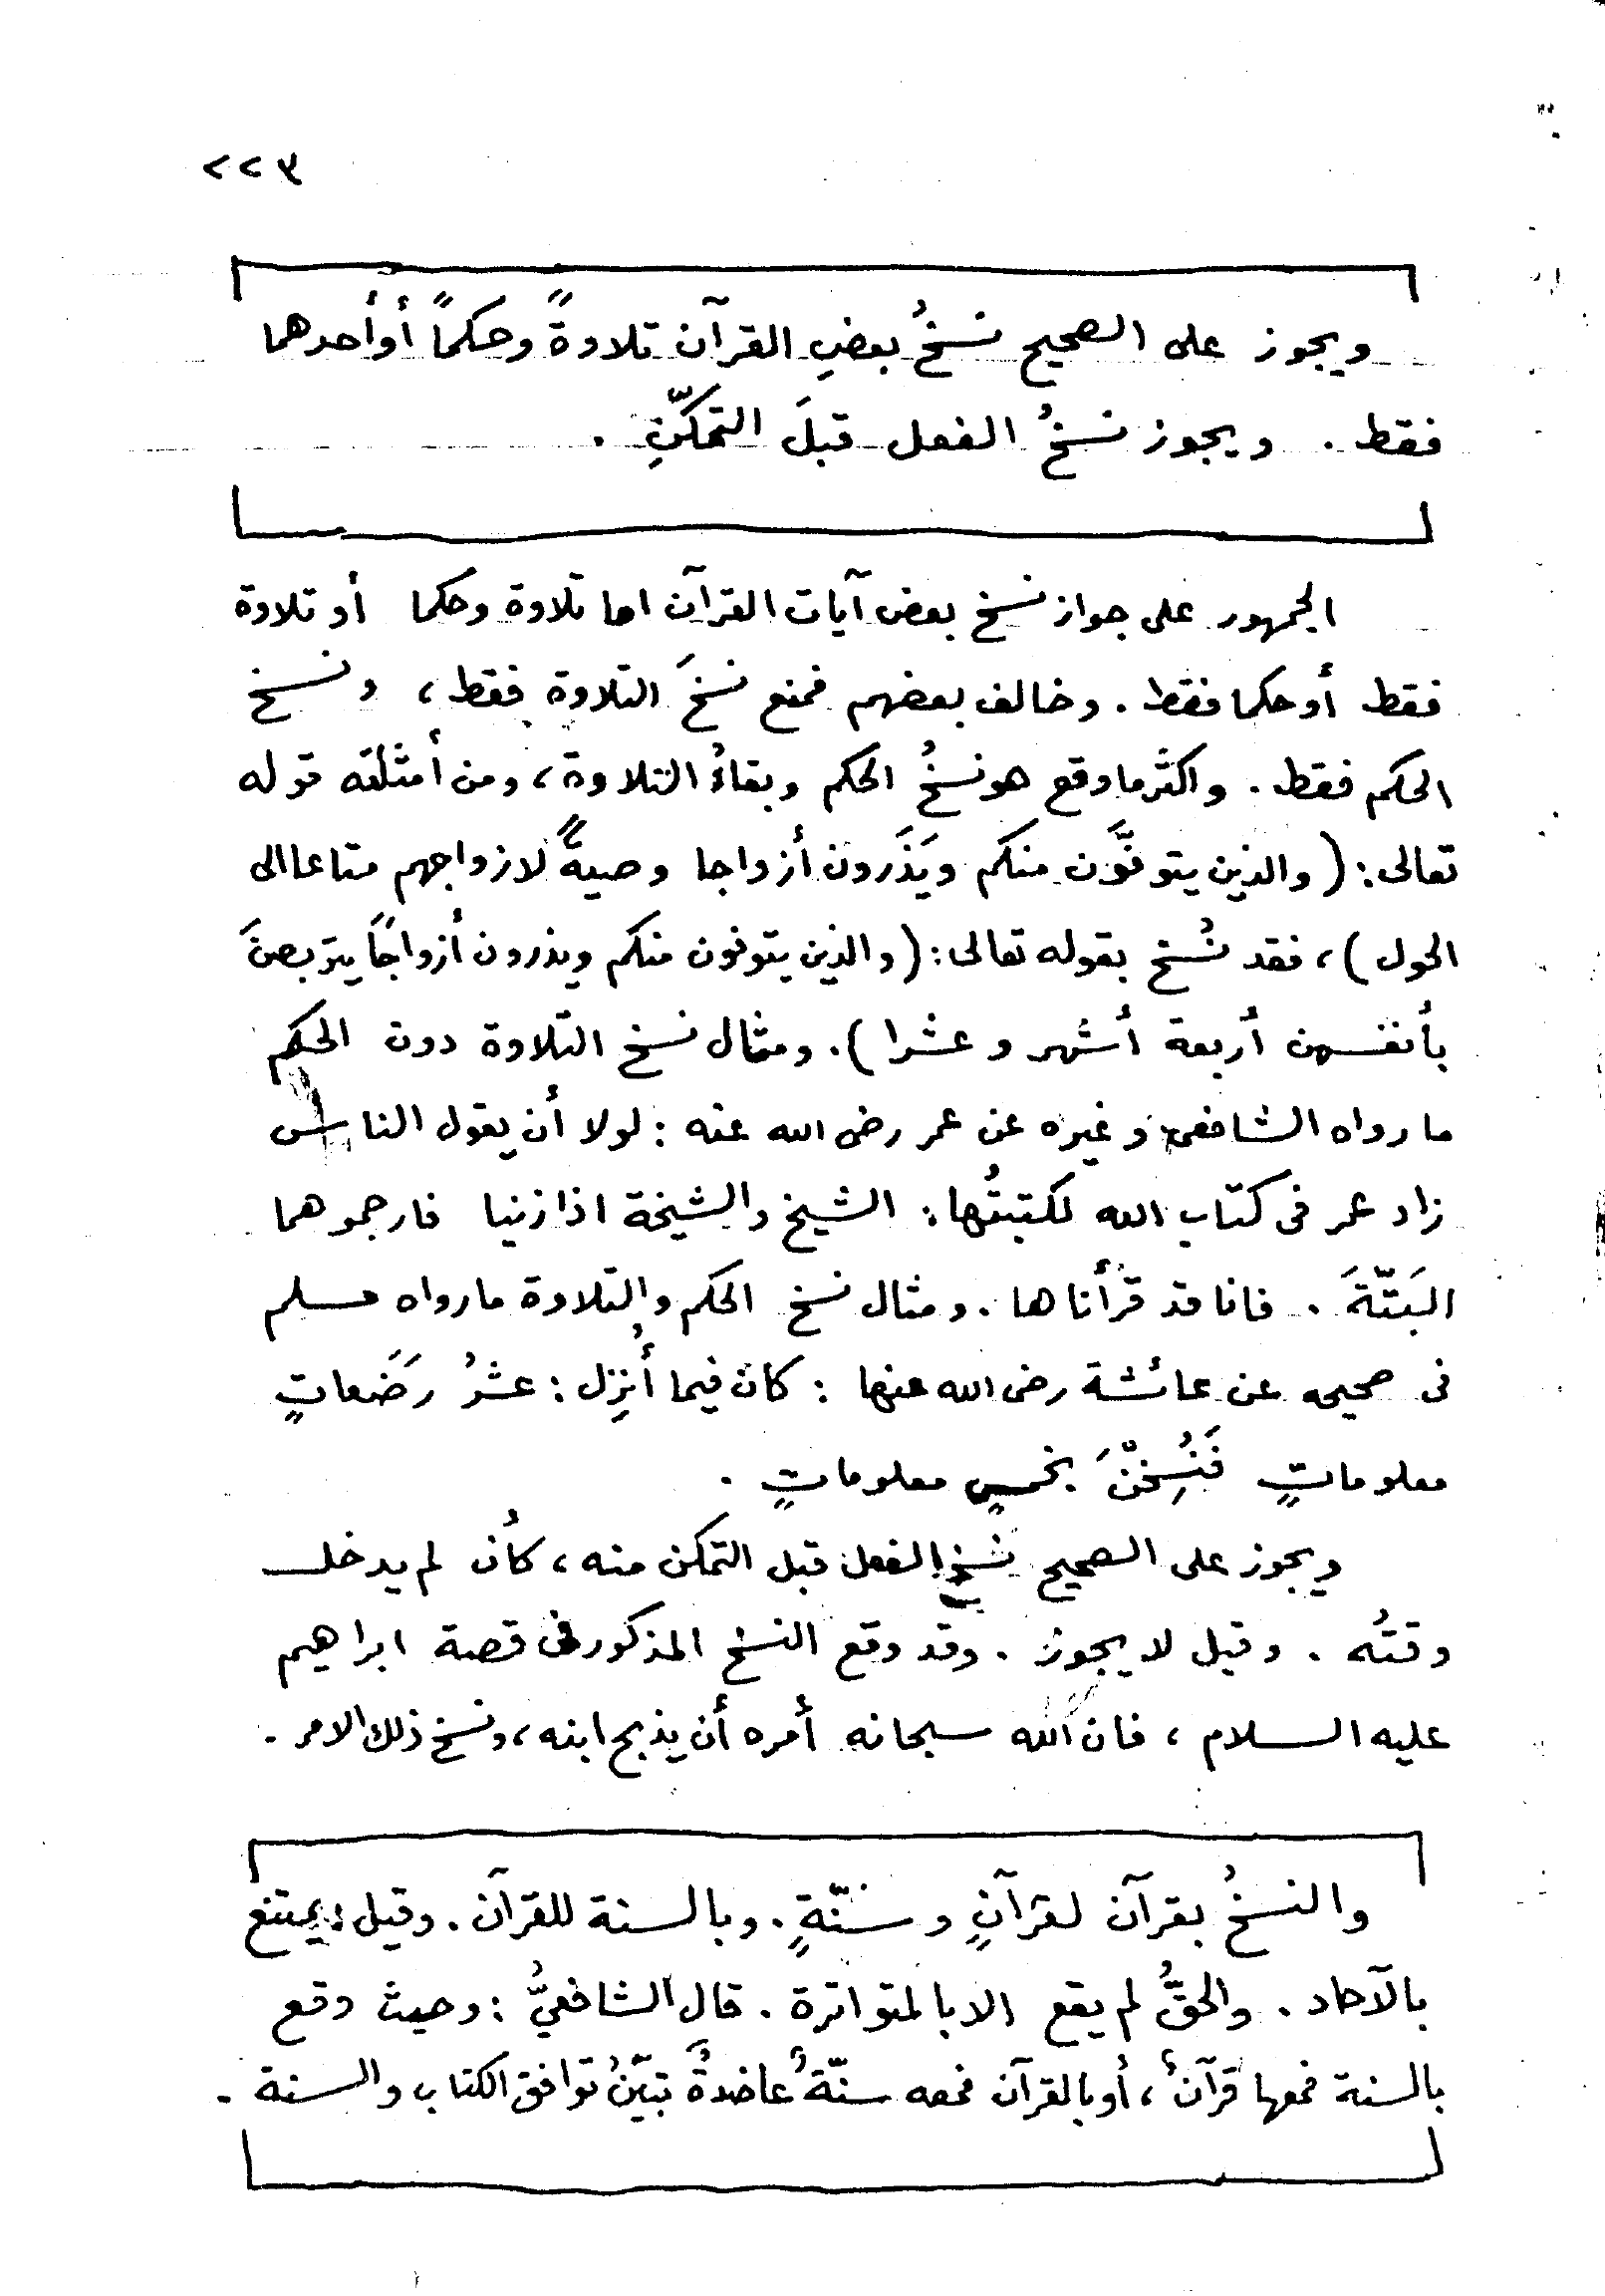 ٢٢٣
ويجوز على الصحيح نسخُ بعضِ القرآن تلاوةً وحكماً أو أحدهما
فقط . ويجوز نسخُ الفعل قبلَ التمكّنِ .
الجمهور على جواز نسخ بعض آيات القرآن اما تلاوة وحكما أو تلاوة
فقط أو حكما فقط . وخالف بعضهم فمنع نسخَ التلاوة فقط ، ونسخ
الحكم فقط . واكثر ما وقع هو نسخُ الحكم وبقاءُ التلاوة ، ومن أمثلته قوله
تعالى : ( والذين يتوفَّون منكم ويَذَرون أزواجا وصيةً لازواجهم متاعا الى
الحول ) ، فقد نُسخ بقوله تعالى : ( والذين يتوفون منكم ويذرون أزواجًا يتربصنَ
بأنفسهن أربعة أشهر وعشرا ) . ومثال نسخ التلاوة دون الحكم
ما رواه الشافعي وغيره عن عمر رضى الله عنه : لولا أن يقول الناس
زاد عمر فى كتاب الله لكتبتُها : الشيخ والشيخة اذا زنيا فارجموهما
البَتّةَ . فانا قد قرأناها . ومثال نسخ الحكم والتلاوة ما رواه مسلم
فى صحيحه عن عائشة رضى الله عنها : كان فيما أُنزِل : عشرُ رَضَعاتٍ
معلوماتٍ فَنُسِخْنَ بخمسٍ معلوماتٍ .
ويجوز على الصحيح نسخ الفعل قبل التمكن منه ، كأن لم يدخل
وقتُه . وقيل لا يجوز . وقد وقع النسخ المذكور فى قصة ابراهيم
عليه السلام ، فان الله سبحانه أمره أن يذبح ابنه ، ونسخ ذلك الامر .
والنسخُ بقرآن لقرآنٍ وسنّةٍ . وبالسنة للقرآن . وقيل يمتنع
بالآحاد . والحقُّ لم يقع الا بالمتواترة . قال الشافعيُّ : وحيث وقع
بالسنة فمعها قرآنٌ ، أو بالقرآن فمعه سنّةٌ عاضدةٌ تبيّنُ توافق الكتاب والسنة .